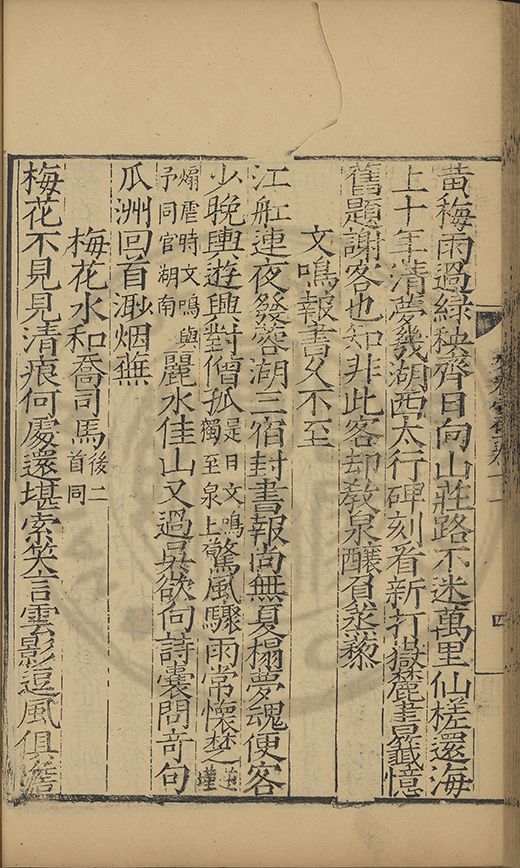 黄梅雨過緑秧齊日向山莊路不迷萬里仙槎還海
上十年清夢幾湖西太行碑刻看新打嶽麓書籖憶
舊題謝客也知非此客却教泉醸負蒸藜
文鳴報書久不至
江舡連夜發蓉湖三宿封書報尚無夏榻夢魂便客
少晚輿遊興對僧孤是日文鳴獨至泉上驚風驟雨常懷楚
煽虐時文鳴與予同官湖南麗水佳山又過吳欲向詩囊問竒句
瓜洲回首渺烟蕪
梅花水和喬司馬後二首同
梅花不見見清痕何處還堪索笑言雲影逗風俱
四